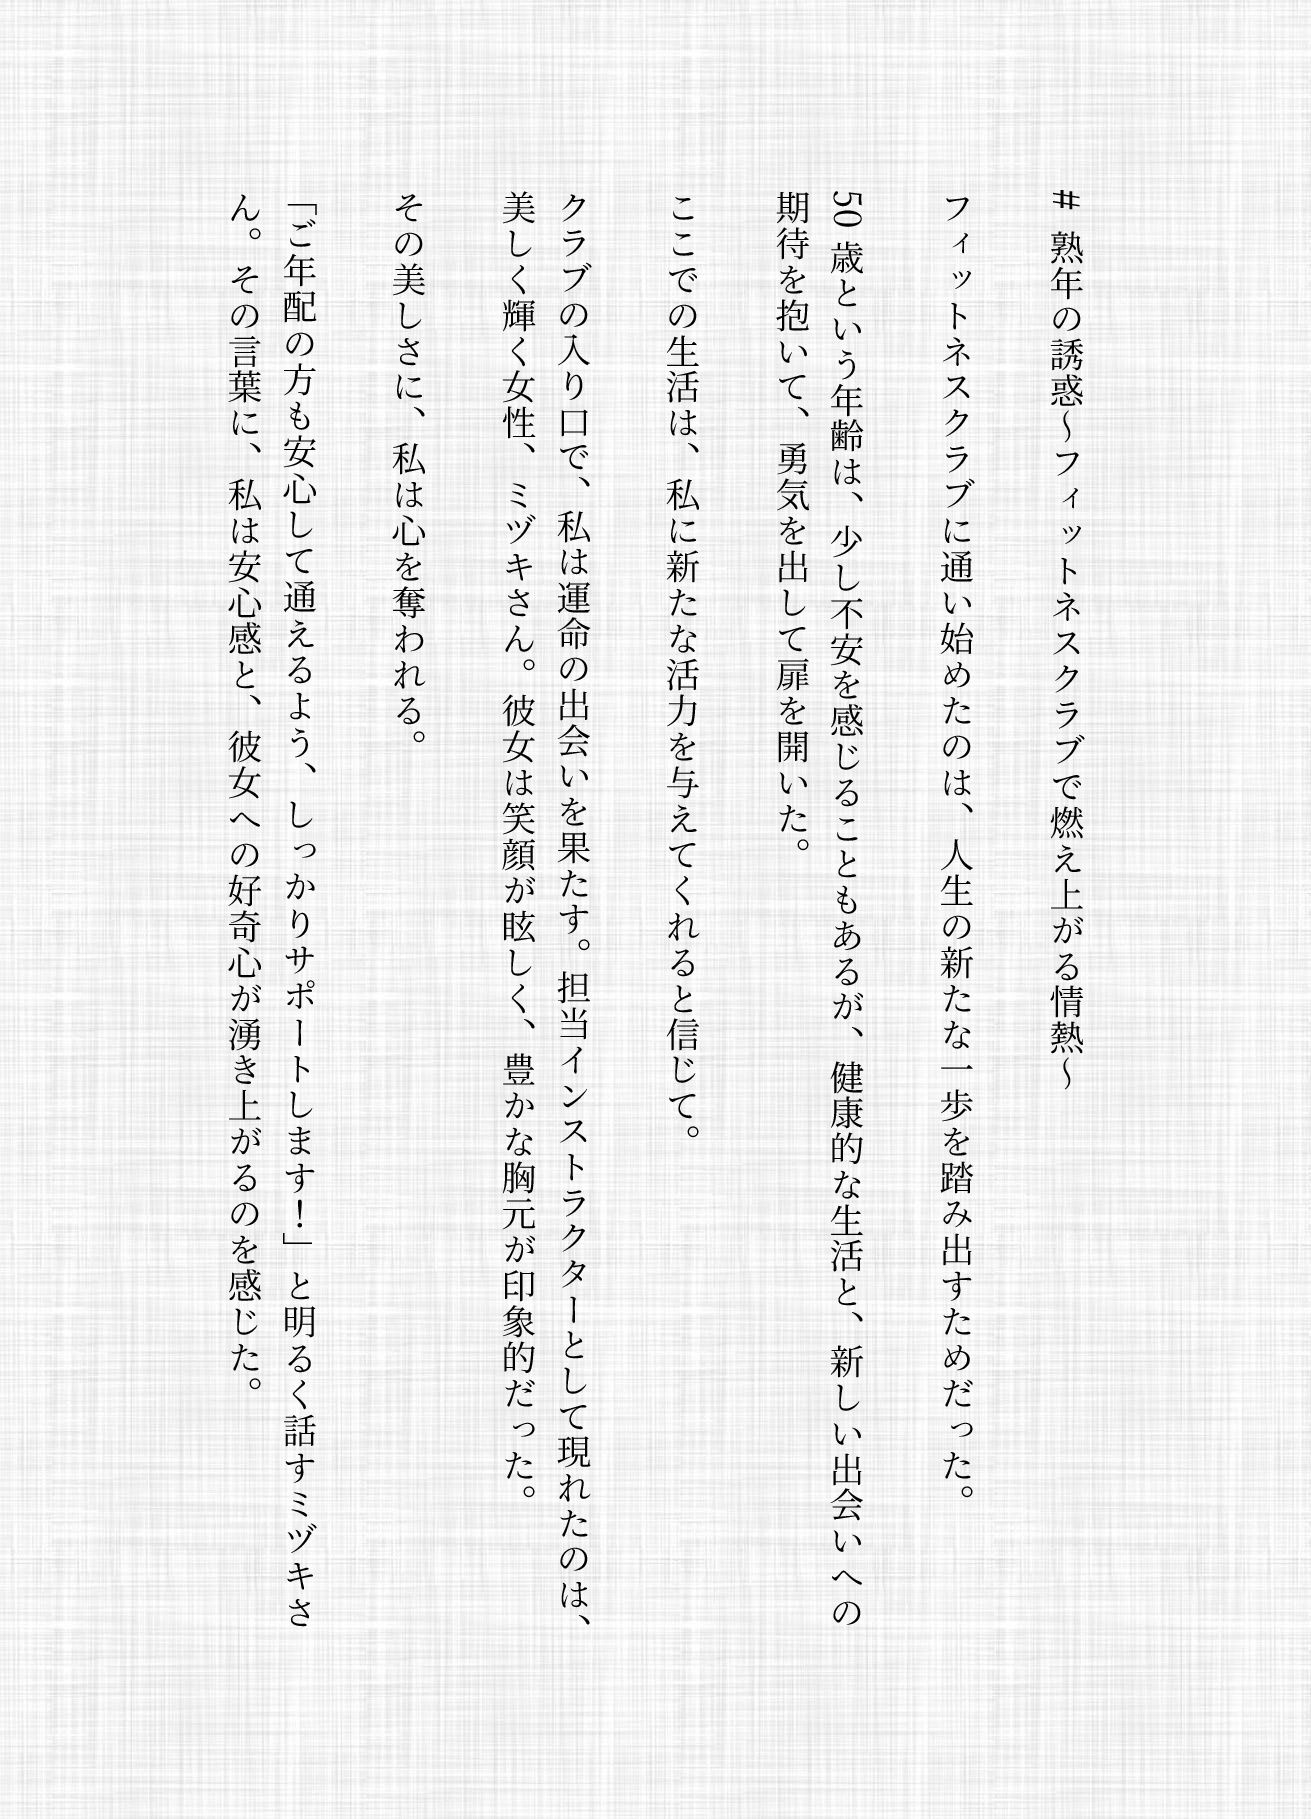 # 熟年の誘惑～フィットネスクラブで燃え上がる情熱～
フィットネスクラブに通い始めたのは、人生の新たな一歩を踏み出すためだった。
50 歳という年齢は、少し不安を感じることもあるが、健康的な生活と、新しい出会いへの
期待を抱いて、勇気を出して扉を開いた。
ここでの生活は、私に新たな活力を与えてくれると信じて。
クラブの入り口で、私は運命の出会いを果たす。担当インストラクターとして現れたのは、
美しく輝く女性、ミヅキさん。彼女は笑顔が眩しく、豊かな胸元が印象的だった。
その美しさに、私は心を奪われる。
「ご年配の方も安心して通えるよう、しっかりサポートします！」と明るく話すミヅキさ
ん。その言葉に、私は安心感と、彼女への好奇心が湧き上がるのを感じた。